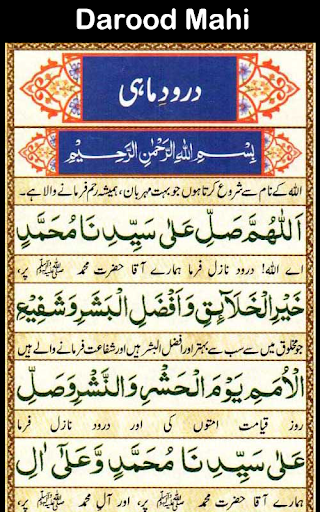 Darood Mahi
درود ماہی
بِسْمِ اللهِ الرَّحْمٰنِ الرَّحِيْمِ
اللہ کے نام سے شروع کرتا ہوں جو بہت مہربان، ہمیشہ رحم فرمانے والا ہے۔
اَللّٰهُمَّ صَلِّ عَلٰى سَيِّدِنَا مُحَمَّدٍ
اے اللہ! درود نازل فرما ہمارے آقا حضرت محمد ﷺ پر،
خَيْرِ الْخَلَآئِقِ وَاَفْضَلِ الْبَشَرِ وَشَفِيْعِ
جو مخلوق میں سے سب سے بہتر اور افضل البشر ہیں اور شفاعت فرمانے والے ہیں
الْاُمَمِ يَوْمَ الْحَشْرِ وَالنَّشْرِ وَصَلِّ
روز قیامت امتوں کی اور درود نازل فرما
عَلٰى سَيِّدِنَا مُحَمَّدٍ وَّعَلٰٓى اٰلِ
ہمارے آقا حضرت محمد ﷺ پر، اور آلِ محمد ﷺ پر